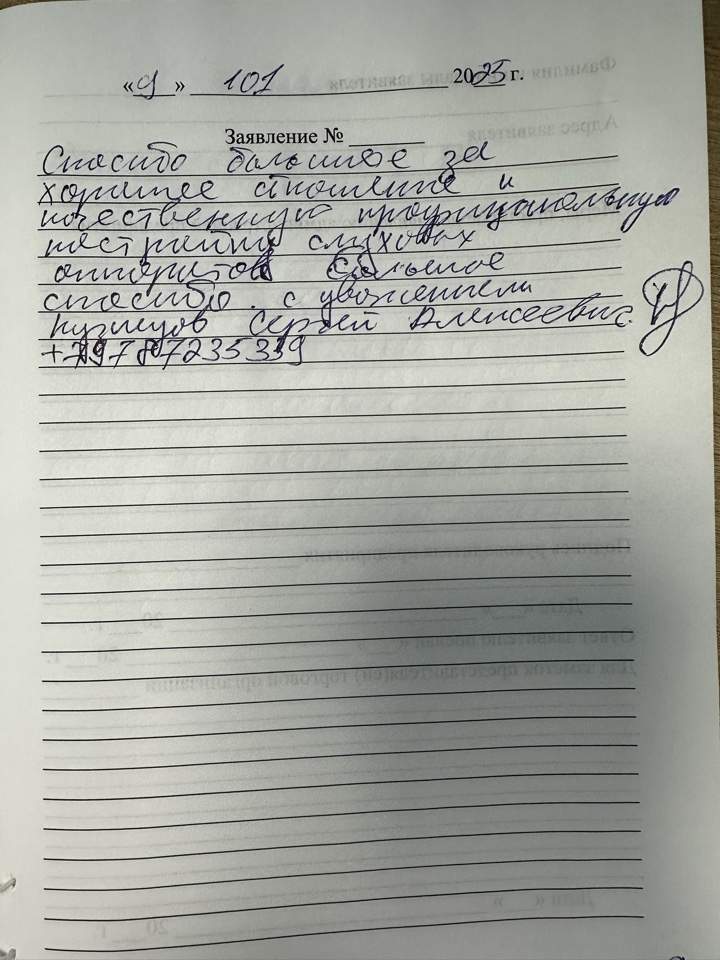 «9» 101 2025 г.
Заявление №
Спасибо большое за
хорошее отношение и
качественную профициональную
настройку слуховых
аппаратов Большое
спасибо. с уважением
Кузнецов Сергей Алексеевич.
+79787235339